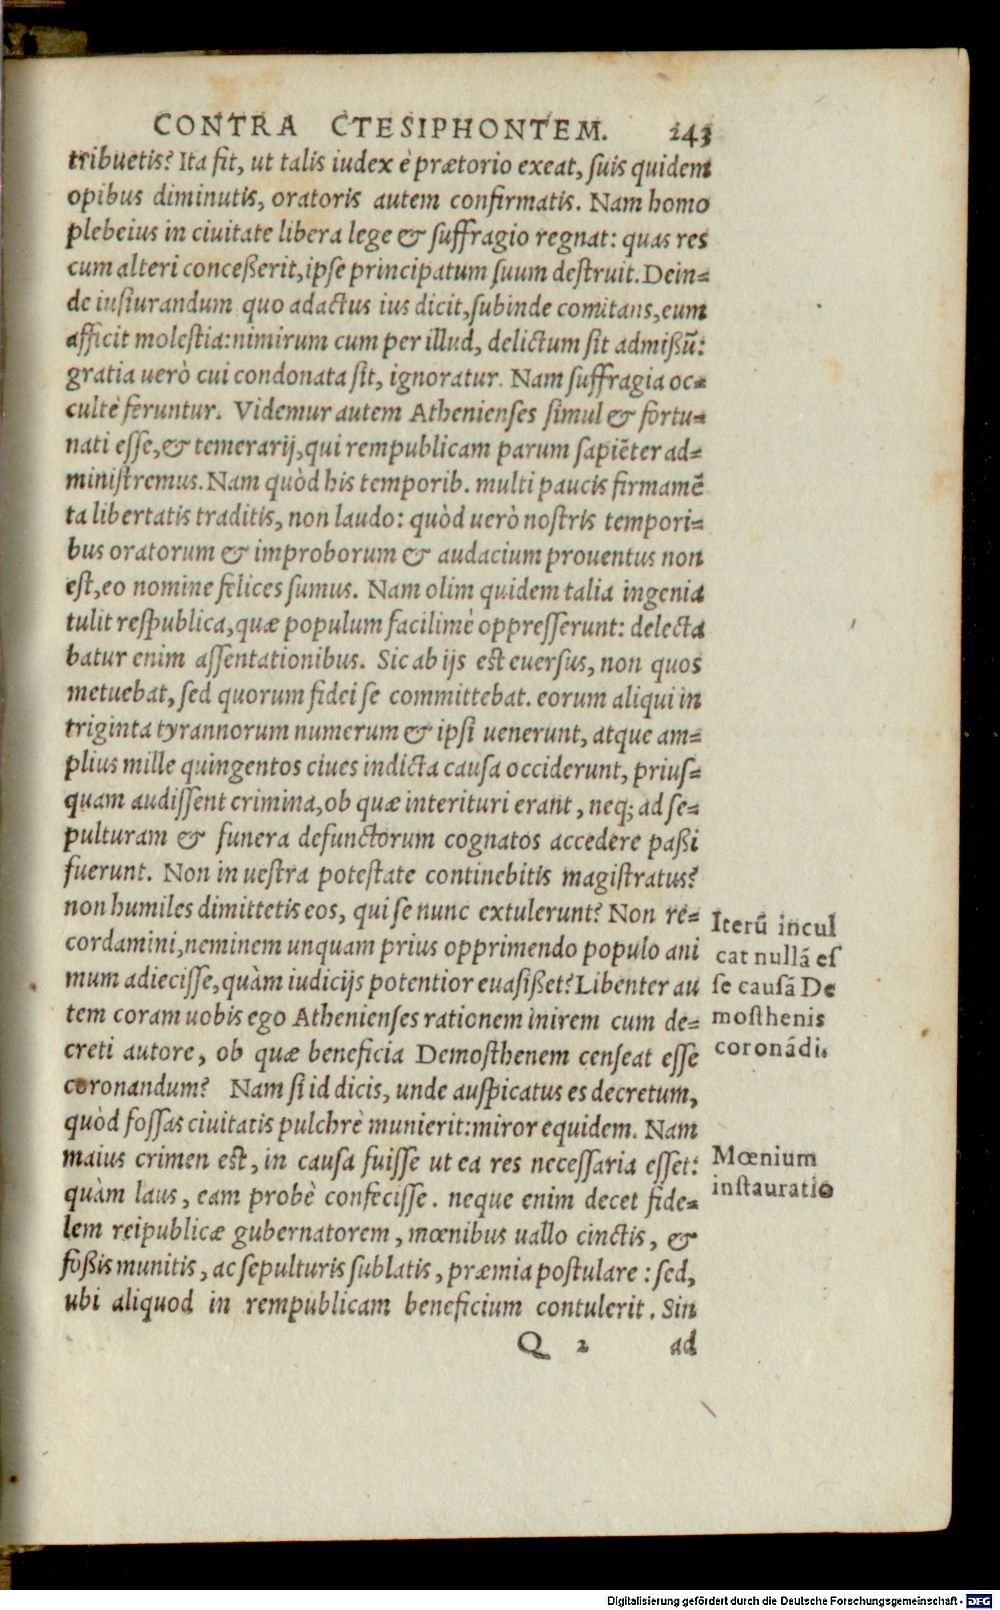 CONTRA CTESIPHONTEM. 243
tribuetis? Ita fit, ut talis iudex è prætorio exeat, ſuis quidem
opibus diminutis, oratoris autem confirmatis. Nam homo
plebeius in ciuitate libera lege & ſuffragio regnat: quas res
cum alteri conceßerit, ipſe principatum ſuum deſtruit. Dein=
de iuſiurandum quo adactus ius dicit, ſubinde comitans, eum
afficit moleſtia: nimirum cum per illud, delictum ſit admißũ:
gratia uerò cui condonata ſit, ignoratur. Nam ſuffragia oc=
cultè feruntur. Videmur autem Athenienſes ſimul & fortu=
nati eſſe, & temerarij, qui rempublicam parum ſapiẽter ad=
miniſtremus. Nam quòd his temporib. multi paucis firmamẽ
ta libertatis traditis, non laudo: quòd uerò noſtris tempori=
bus oratorum & improborum & audacium prouentus non
eſt, eo nomine felices ſumus. Nam olim quidem talia ingenia
tulit reſpublica, quæ populum facilimè oppreſſerunt: delecta
batur enim aſſentationibus. Sic ab ijs eſt euerſus, non quos
metuebat, ſed quorum fidei ſe committebat. eorum aliqui in
triginta tyrannorum numerum & ipſi uenerunt, atque am=
plius mille quingentos ciues indicta cauſa occiderunt, priuſ=
quam audiſſent crimina, ob quæ interituri erant, neq; ad ſe=
pulturam & funera defunctorum cognatos accedere paßi
fuerunt. Non in ueſtra poteſtate continebitis magiſtratus?
non humiles dimittetis eos, qui ſe nunc extulerunt? Non re=
cordamini, neminem unquam prius opprimendo populo ani
mum adieciſſe, quàm iudicijs potentior euaſißet? Libenter au
tem coram uobis ego Athenienſes rationem inirem cum de=
creti autore, ob quæ beneficia Demoſthenem cenſeat eſſe
coronandum? Nam ſi id dicis, unde auſpicatus es decretum,
quòd foſſas ciuitatis pulchrè munierit: miror equidem. Nam
maius crimen eſt, in cauſa fuiſſe ut ea res neceſſaria eſſet:
quàm laus, eam probè confeciſſe. neque enim decet fide=
lem reipublicæ gubernatorem, mœnibus uallo cinctis, &
foßis munitis, ac ſepulturis ſublatis, præmia poſtulare: ſed,
ubi aliquod in rempublicam beneficium contulerit. Sin
Q 2 ad
Iterũ incul
cat nullã eſ
ſe cauſã De
moſthenis
coronãdi.
Mœnium
inſtauratio
Digitalisierung gefördert durch die Deutsche Forschungsgemeinschaft - DFG